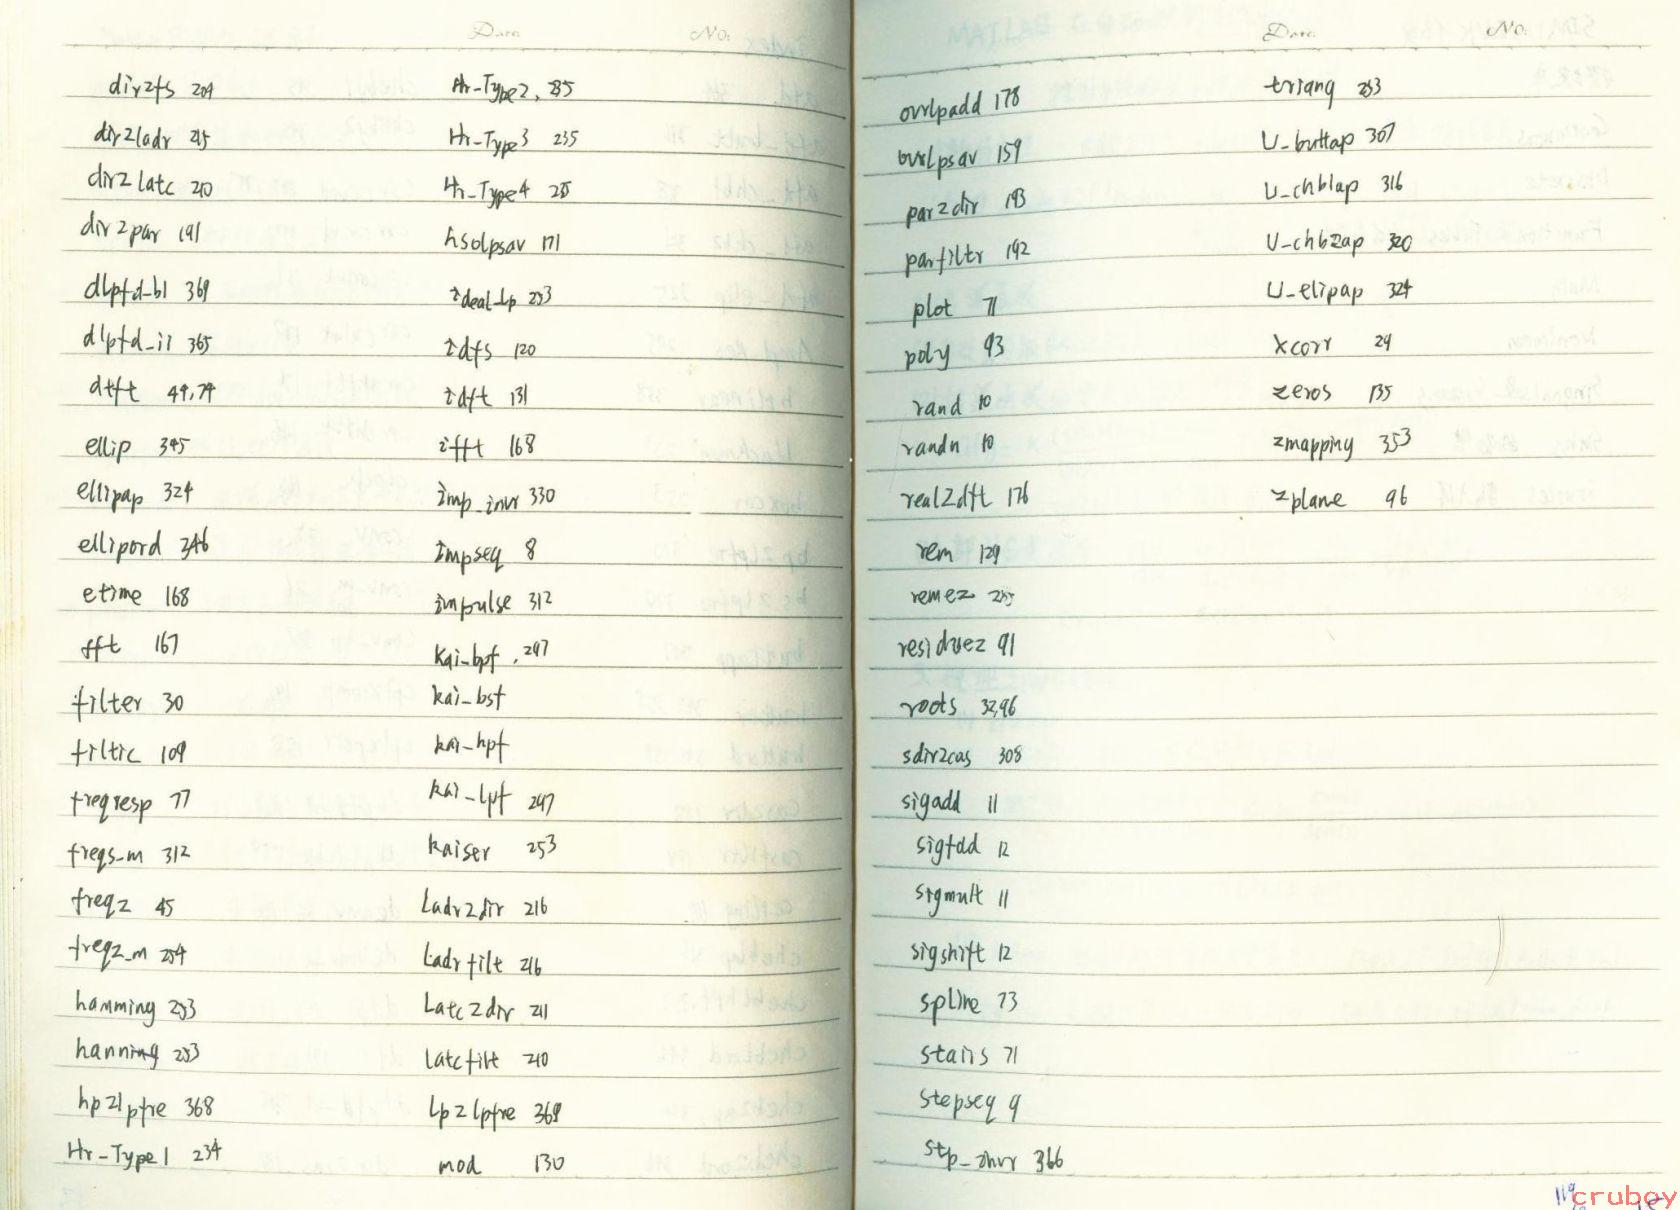 Date. No:
dir2fs 204
dir2ladr 215
dir2latc 210
dir2par 191
dlpfd_bl 369
dlpfd_ii 365
dtft 49,74
ellip 345
ellipap 324
ellipord 346
etime 168
fft 167
filter 30
filtic 109
freqresp 77
freqs_m 312
freqz 45
freqz_m 254
hamming 253
hanning 253
hp2lpfre 368
Hr-Type1 234
Hr-Type2, 235
Hr-Type3 235
Hr-Type4 235
hsolpsav 171
ideal_lp 253
idfs 120
idft 131
ifft 168
imp_invr 330
impseq 8
impulse 312
kai_bpf . 247
kai_bsf
kai_hpf
kai_lpf 247
kaiser 253
Ladr2dir 216
Ladrfilt 216
Latc2dir 211
latcfilt 210
Lp2lpfre 369
mod 130
Date. No:
ovrlpadd 178
ovrlpsav 159
par2dir 193
parfiltr 192
plot 71
poly 93
rand 10
randn 10
real2dft 176
rem 129
remez
residuez 91
roots 32,96
sdir2cas 308
sigadd 11
sigfold 12
sigmult 11
sigshift 12
spline 73
stairs 71
stepseq 9
stp_invr 366
triang 253
U_buttap 307
U_chb1ap 316
U_chb2ap 320
U_elipap 324
xcorr 24
zeros 135
zmapping 353
zplane 96
cruboy